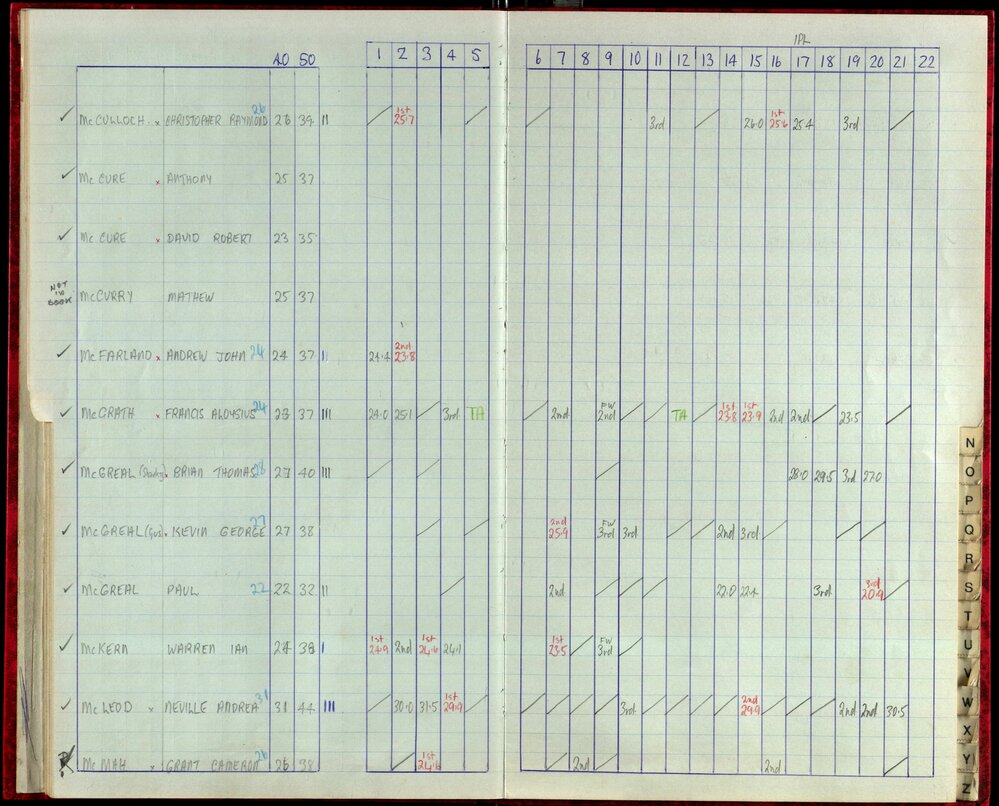 IPL
40 50 1 2 3 4 5 6 7 8 9 10 11 12 13 14 15 16 17 18 19 20 21 22
26 1st 1st
✓ McCULLOCH x CHRISTOPHER RAYMOND 26 39 II / 25.7 / / 3rd / 26.0 25.6 25.4 3rd /
✓ McCURE x ANTHONY 25 37
✓ McCURE x DAVID ROBERT 23 35
NOT IN BOOK McCURRY MATHEW 25 37
2nd
✓ McFARLAND x ANDREW JOHN 24 24 37 II 24.4 23.8
24 FW 1st 1st
✓ McGRATH x FRANCIS ALOYSIUS 23 37 III 24.0 25.1 / 3rd TA / 2nd 2nd / / TA / 23.8 23.9 2nd 2nd / 23.5 /
✓ McGREAL x BRIAN THOMAS 28 27 40 III / / / 28.0 29.5 3rd 27.0
27 2nd FW
✓ McGREAL (Gus) x KEVIN GEORGE 27 38 / / 25.9 3rd 3rd / / 2nd 3rd / / /
3rd
✓ McGREAL PAUL 22 22 32 II / 2nd / / / 22.0 22.4 3rd 20.9 /
1st 1st 1st FW
✓ McKERN WARREN IAN 24 38 I 24.9 2nd 24.6 24.1 23.5 / 3rd /
31 1st 2nd
✓ McLEOD x NEVILLE ANDREA 31 44 III / 30.0 31.5 29.9 / / / / / 3rd / / / / 29.9 / / / 2nd 2nd 30.5
26 1st
McMAH x GRANT CAMERON 26 38 / 24.6 / 2nd / 2nd /
N
O
P
Q
R
S
T
U
V
W
X
Y
Z